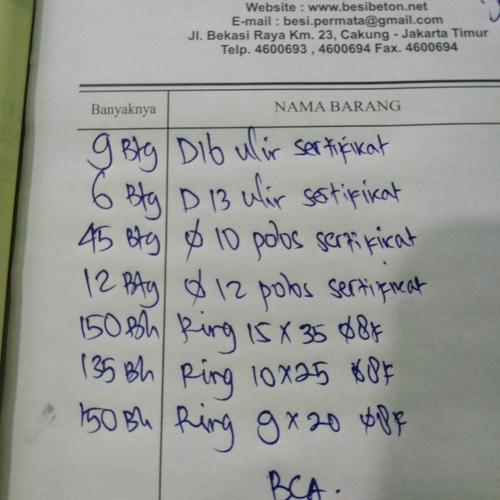 Website : www.besibeton.net
E-mail : besi.permata@gmail.com
Jl. Bekasi Raya Km. 23, Cakung - Jakarta Timur
Telp. 4600693 , 4600694 Fax. 4600694
Banyaknya NAMA BARANG
9 Btg D16 ulir sertifikat
6 Btg D 13 ulir sertifikat
45 Btg Ø 10 polos sertifikat
12 Btg Ø 12 polos sertifikat
150 Bh Ring 15 x 35 Ø8F
135 Bh Ring 10x25 Ø8F
150 Bh Ring 9 x 20 Ø8F
BCA.